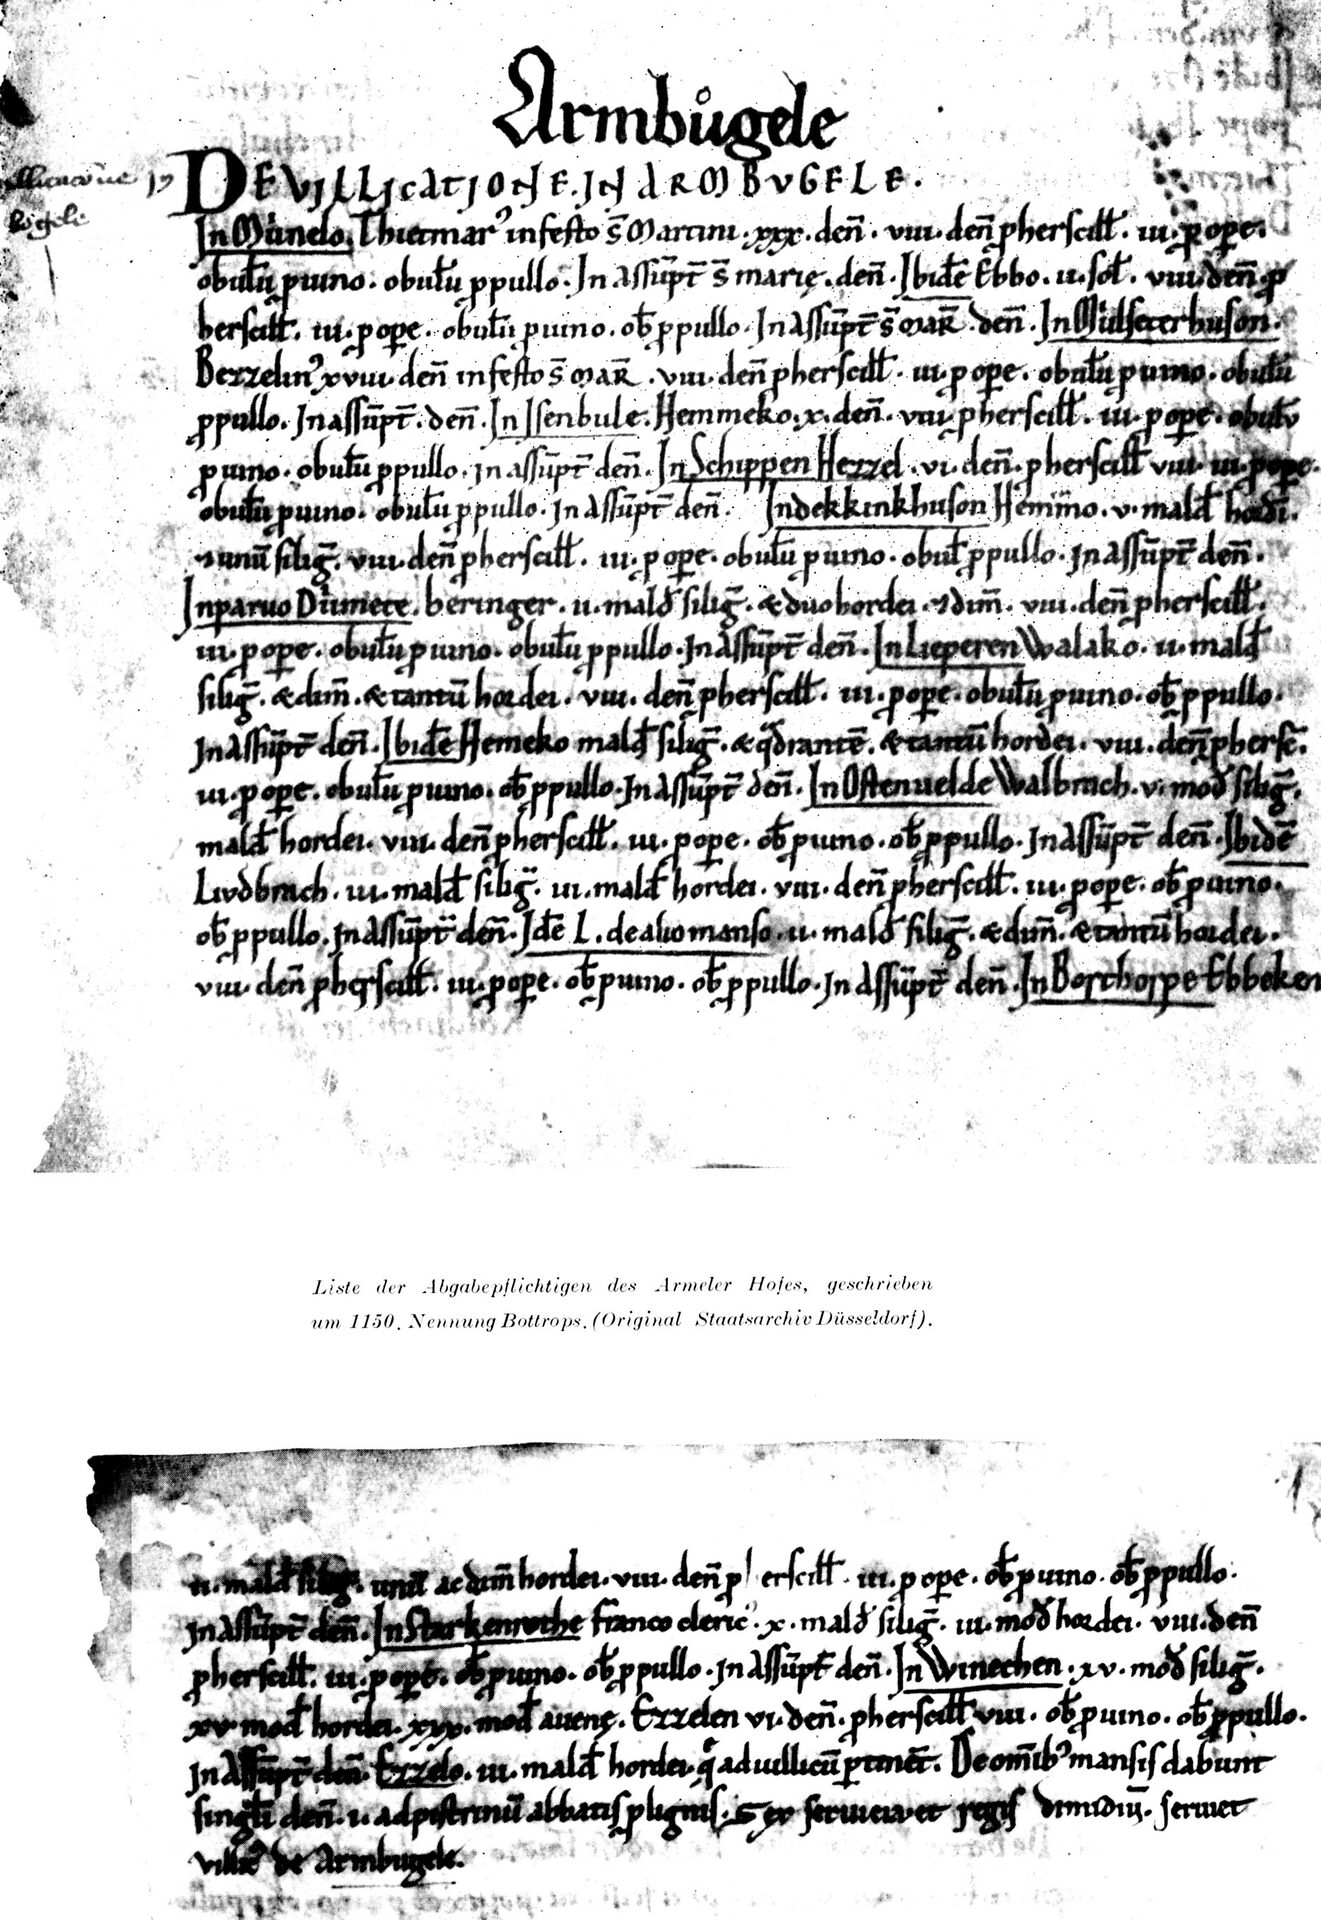 Armbůgele
DE VILLICATIONE IN ARMBVGELE.
bůgele
In Můnelo. Thietmar᾽ in festo s̄ Martini · xxx · den̄ · viii · den̄ p herscill̄ · iii · p ope ·
obulū p uino · obulū p pullo · In assūpt̄ s̄ marię · den̄ · Ibidē Ebbo · ii · sol̄ · viii · den̄ p
herscill̄ · iii · p ope · obulū p uino · ob̄ p pullo · In assūpt̄ s̄ mar̄ · den̄ · In Můlseterhuson ·
Bezzelin᾽ xviii · den̄ in festo s̄ mar̄ · viii · den̄ p herscill̄ · iii · p ope · obulū p uino · obulū
p pullo · In assūpt̄ · den̄ · In Isenbule · Hemmeko · x · den̄ · viii · p herscill̄ · iii · p ope · obulū
p uino · obulū p pullo · in assūpt̄ den̄ · In Schippen Hezzel · vi · den̄ · p herscill̄ viii · iii · p ope ·
obulū p uino · obulū p pullo · In assūpt̄ den̄ · In dekkinkhuson Hemmo · v · mald̄ hordi ·
⁊ unū siliḡ · viii · den̄ p herscill̄ · iii · p ope · obulū p uino · obul̄ p pullo · In assūpt̄ den̄ ·
In paruo Důmete · beringer · ii · mald̄ siliḡ · & duo hordei · ⁊ dim̄ · viii · den̄ p herscill̄ ·
iii · p ope · obulū p uino · obulū p pullo · In assūpt̄ den̄ · In Lieperen Walako · ii · mald̄
siliḡ · & dim̄ · & tantū hordei · viii · den̄ p herscill̄ · iii · p ope · obulū p uino · ob̄ p pullo ·
In assūpt̄ den̄ · Ibidē Hemeko mald̄ siliḡ · & q̄drantē · & tantū hordei · viii · den̄ p hersc̄ ·
iii · p ope · obulū p uino · ob̄ p pullo · In assūpt̄ den̄ · In Ostenuelde Walbrach · v · mod̄ siliḡ ·
mald̄ hordei · viii · den̄ p herscill̄ · iii · p ope · ob̄ p uino · ob̄ p pullo · In assūpt̄ den̄ · Ibidē
Livdbrach · iii · mald̄ siliḡ · iii · mald̄ hordei · viii · den̄ p herscill̄ · iii · p ope · ob̄ p uino ·
ob̄ p pullo · In assūpt̄ den̄ · Idē L · de alio manso · ii · mald̄ siliḡ · & dim̄ · & tantū hordei ·
viii · den̄ p herscill̄ · iii · p ope · ob̄ p uino · ob̄ p pullo · In assūpt̄ den̄ · In Borthorpe Ebbeken
Liste der Abgabepflichtigen des Armeler Hofes, geschrieben
um 1150. Nennung Bottrops. (Original Staatsarchiv Düsseldorf).
ii · mald̄ siliḡ · unū ac dim̄ hordei · viii · den̄ p erscill̄ · iii · p ope · ob̄ p uino · ob̄ p pullo ·
In assūpt̄ den̄ · In Starkenrothe franco cleric᾽ · x · mald̄ siliḡ · iii · mod̄ hordei · viii · den̄
p herscill̄ · iii · p ope · ob̄ p uino · ob̄ p pullo · In assūpt̄ den̄ · In Winethen · xv · mod̄ siliḡ ·
xv · mod̄ hordei · xxx · mod̄ auenę · Ezzelen vi · den̄ · p herscill̄ viii · ob̄ p uino · ob̄ p pullo ·
In assūpt̄ den̄ · Ezzelo · iii · mald̄ hordei · q̄ ad uillicū ptinēt · De omīb᾽ mansis dabunt
singl̄i den̄ · i · ad pistrinū abbatis p lignis · regis dimidiū · seruiet
villic᾽ de Armbugele.